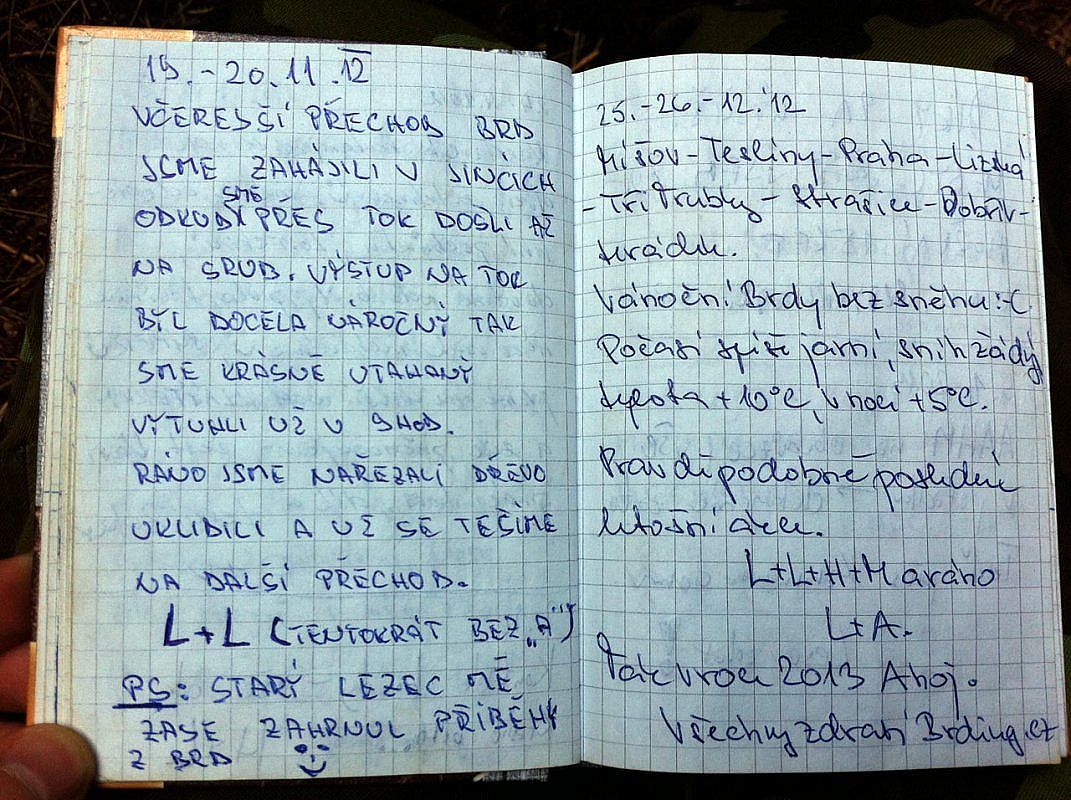 19.-20.11.12
VČEREJŠÍ PŘECHOD BRD
JSME ZAHÁJILI V JINCÍCH
ODKUD SME PŘES TOK DOŠLI AŽ
NA SRUB. VÝSTUP NA TOK
BYL DOCELA NÁROČNÝ TAK
SME KRÁSNĚ UTAHANÝ
VYTUHLI UŽ V 9HOD.
RÁNO JSME NAŘEZALI DŘEVO
UKLIDILI A UŽ SE TĚŠÍME
NA DALŠÍ PŘECHOD.
L+L (TENTOKRÁT BEZ „A")
PS: STARÝ LEZEC MĚ
ZASE ZAHRNUL PŘÍBĚHY
Z BRD
25.-26.-12.'12
Míšov-Teslíny-Praha-Lízká
-Tři Trubky-Strašice-Dobřív-
Hrádek.
Vánoční Brdy bez sněhu :-C
Počasí spíše jarní, sníh žádný,
teplota +10°C, v noci +5°C.
Pravděpodobně poslední
letošní akce.
L+L+H+M a ráno
L+A.
Tak v roce 2013 Ahoj.
Všechny zdraví Brding.cz